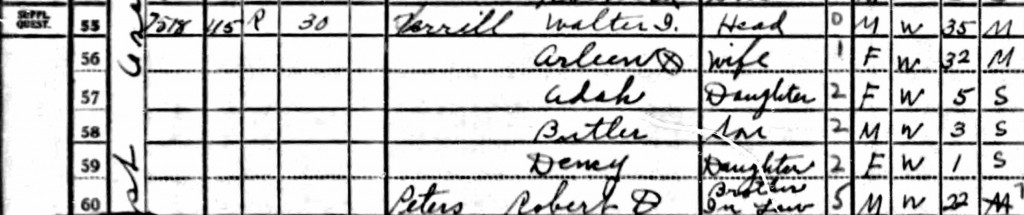 SUPPL. QUEST. 55 7518 115 R 30 Verrill Walter I. Head 0 M W 35 M
56 Arleen Ⓧ Wife 1 F W 32 M
57 Adah Daughter 2 F W 5 S
58 Butler Son 2 M W 3 S
59 Daughter 2 F W 1 S
60 Peters Robert Brother In Law 5 M W 22